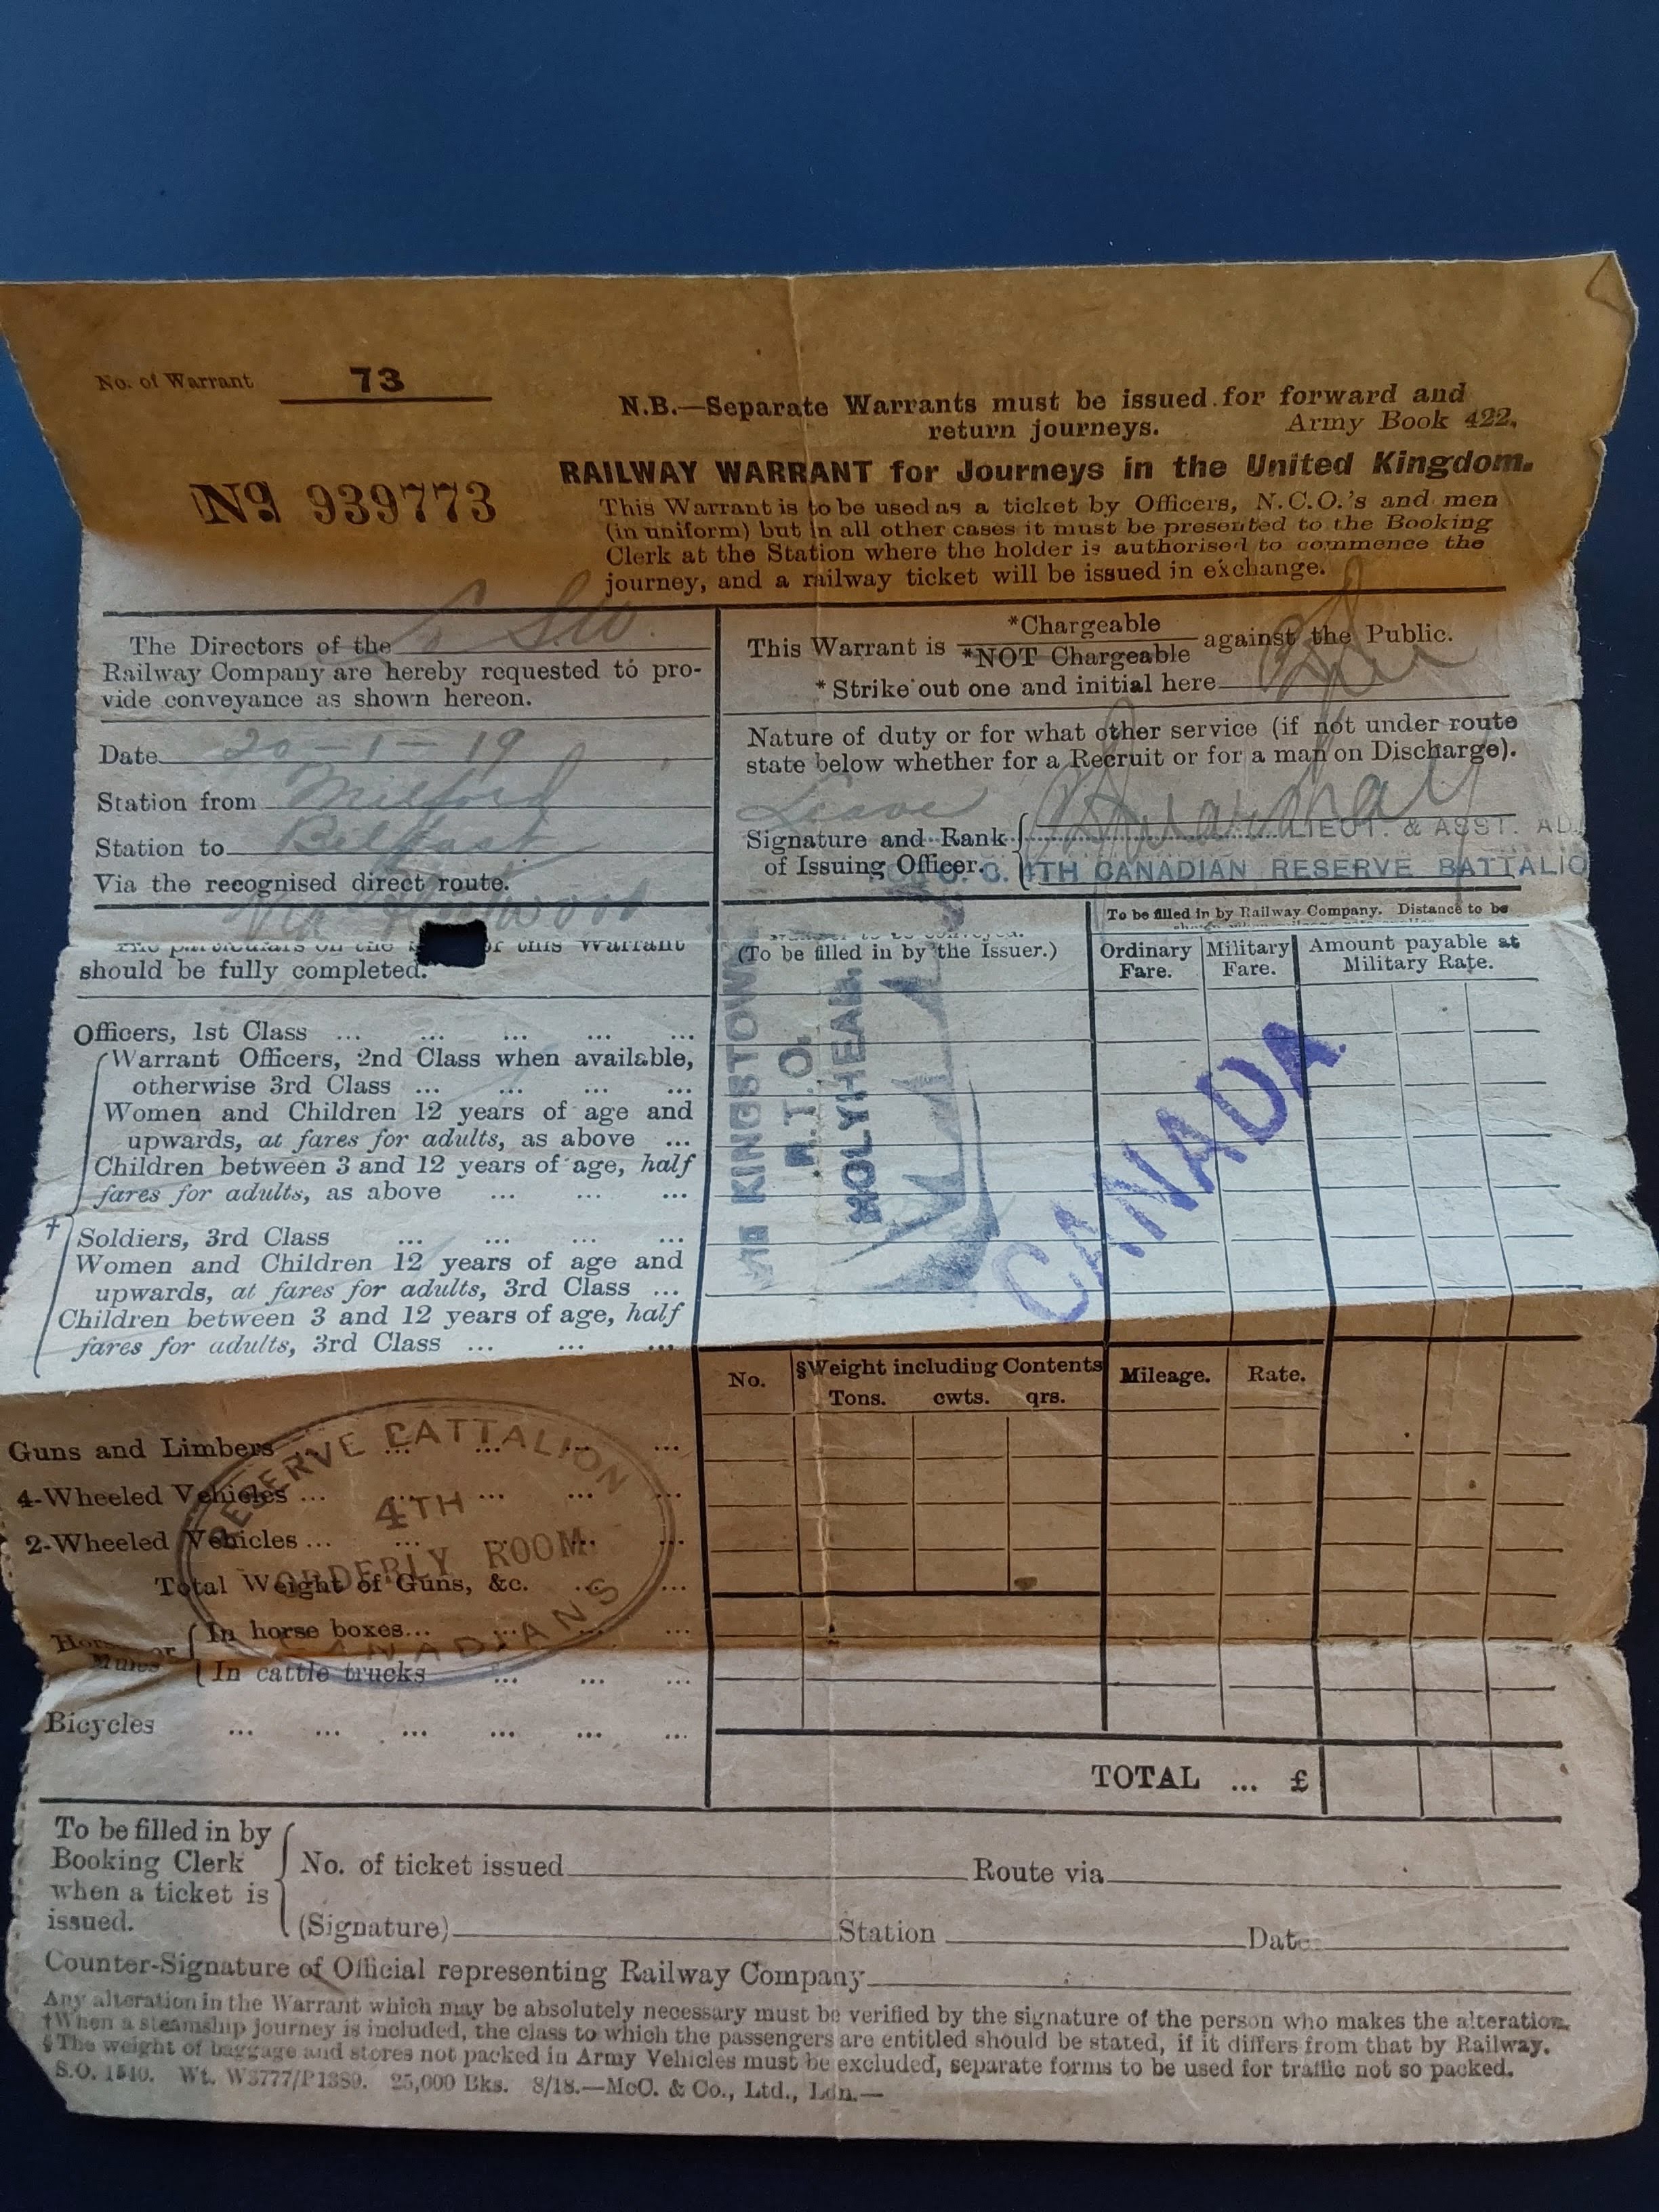 No. of Warrant 73
N.B.—Separate Warrants must be issued for forward and
return journeys. Army Book 422.
RAILWAY WARRANT for Journeys in the United Kingdom.
No 939773
This Warrant is to be used as a ticket by Officers, N.C.O.'s and men
(in uniform) but in all other cases it must be presented to the Booking
Clerk at the Station where the holder is authorised to commence the
journey, and a railway ticket will be issued in exchange.
The Directors of the S.W.
Railway Company are hereby requested to pro-
vide conveyance as shown hereon.
Date 20-1-19
Station from Milford
Station to Belfast
Via the recognised direct route.
Via Fleetwood
This Warrant is *Chargeable
*NOT Chargeable against the Public.
*Strike out one and initial here
Nature of duty or for what other service (if not under route
state below whether for a Recruit or for a man on Discharge).
Leave
Signature and Rank
of Issuing Officer.
LIEUT. & ASST. AD
O.C. 4TH CANADIAN RESERVE BATTALIO
The particulars on the of this Warrant
should be fully completed.
(To be filled in by the Issuer.)
To be filled in by Railway Company. Distance to be
Ordinary Fare.
Military Fare.
Amount payable at Military Rate.
Officers, 1st Class ... ... ... ... ...
Warrant Officers, 2nd Class when available,
otherwise 3rd Class ... ... ... ...
Women and Children 12 years of age and
upwards, at fares for adults, as above ...
Children between 3 and 12 years of age, half
fares for adults, as above ... ... ...
†
Soldiers, 3rd Class ... ... ... ...
Women and Children 12 years of age and
upwards, at fares for adults, 3rd Class ...
Children between 3 and 12 years of age, half
fares for adults, 3rd Class ... ... ...
VIA KINGSTOWN
R.T.O.
HOLYHEAD
CANADA.
No.
§Weight including Contents
Tons. cwts. qrs.
Mileage.
Rate.
Guns and Limbers ... ... ... ...
4-Wheeled Vehicles ... ... ... ... ...
2-Wheeled Vehicles ... ... ... ... ...
Total Weight of Guns, &c. ... ...
Horses or Mules
In horse boxes... ... ... ...
In cattle trucks ... ... ...
Bicycles ... ... ... ... ... ...
RESERVE BATTALION
4TH
ORDERLY ROOM
CANADIANS
TOTAL ... £
To be filled in by
Booking Clerk
when a ticket is
issued.
No. of ticket issued Route via
(Signature) Station Date
Counter-Signature of Official representing Railway Company
Any alteration in the Warrant which may be absolutely necessary must be verified by the signature of the person who makes the alteration.
†When a steamship journey is included, the class to which the passengers are entitled should be stated, if it differs from that by Railway.
§The weight of baggage and stores not packed in Army Vehicles must be excluded, separate forms to be used for traffic not so packed.
S.O. 1540. Wt. W3777/P1389. 25,000 Bks. 8/18.—McC. & Co., Ltd., Ldn.—